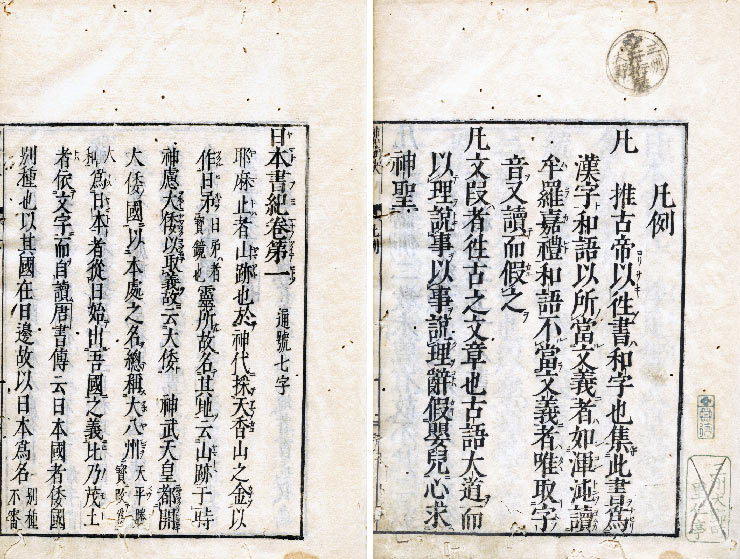 凡例
凡 推古帝以徃書和字也焦此書爲
漢字和語以所當文義者如渾沌讀
牟羅嘉禮和語不當文義者唯取字
音又讀而假之
凡文段者徃古之文章也古語大道而
以理說事以事說理辭假嬰兒心求
神聖
日本書紀卷第一 通號七字
耶麻止者山跡也於神代採天香山之金以
作日矛日弟者寶鏡也靈所故名其地云山跡于時
神慮大倭以取義故云大倭 神武天皇都開
大倭國以本處之名總稱大八州天平勝寶改
稱爲日本者從日始出吾國之義此乃茂土
者依文字而自讀唐書傳云日本國者倭國
別種也以其國在日邊故以日本爲名別種不審